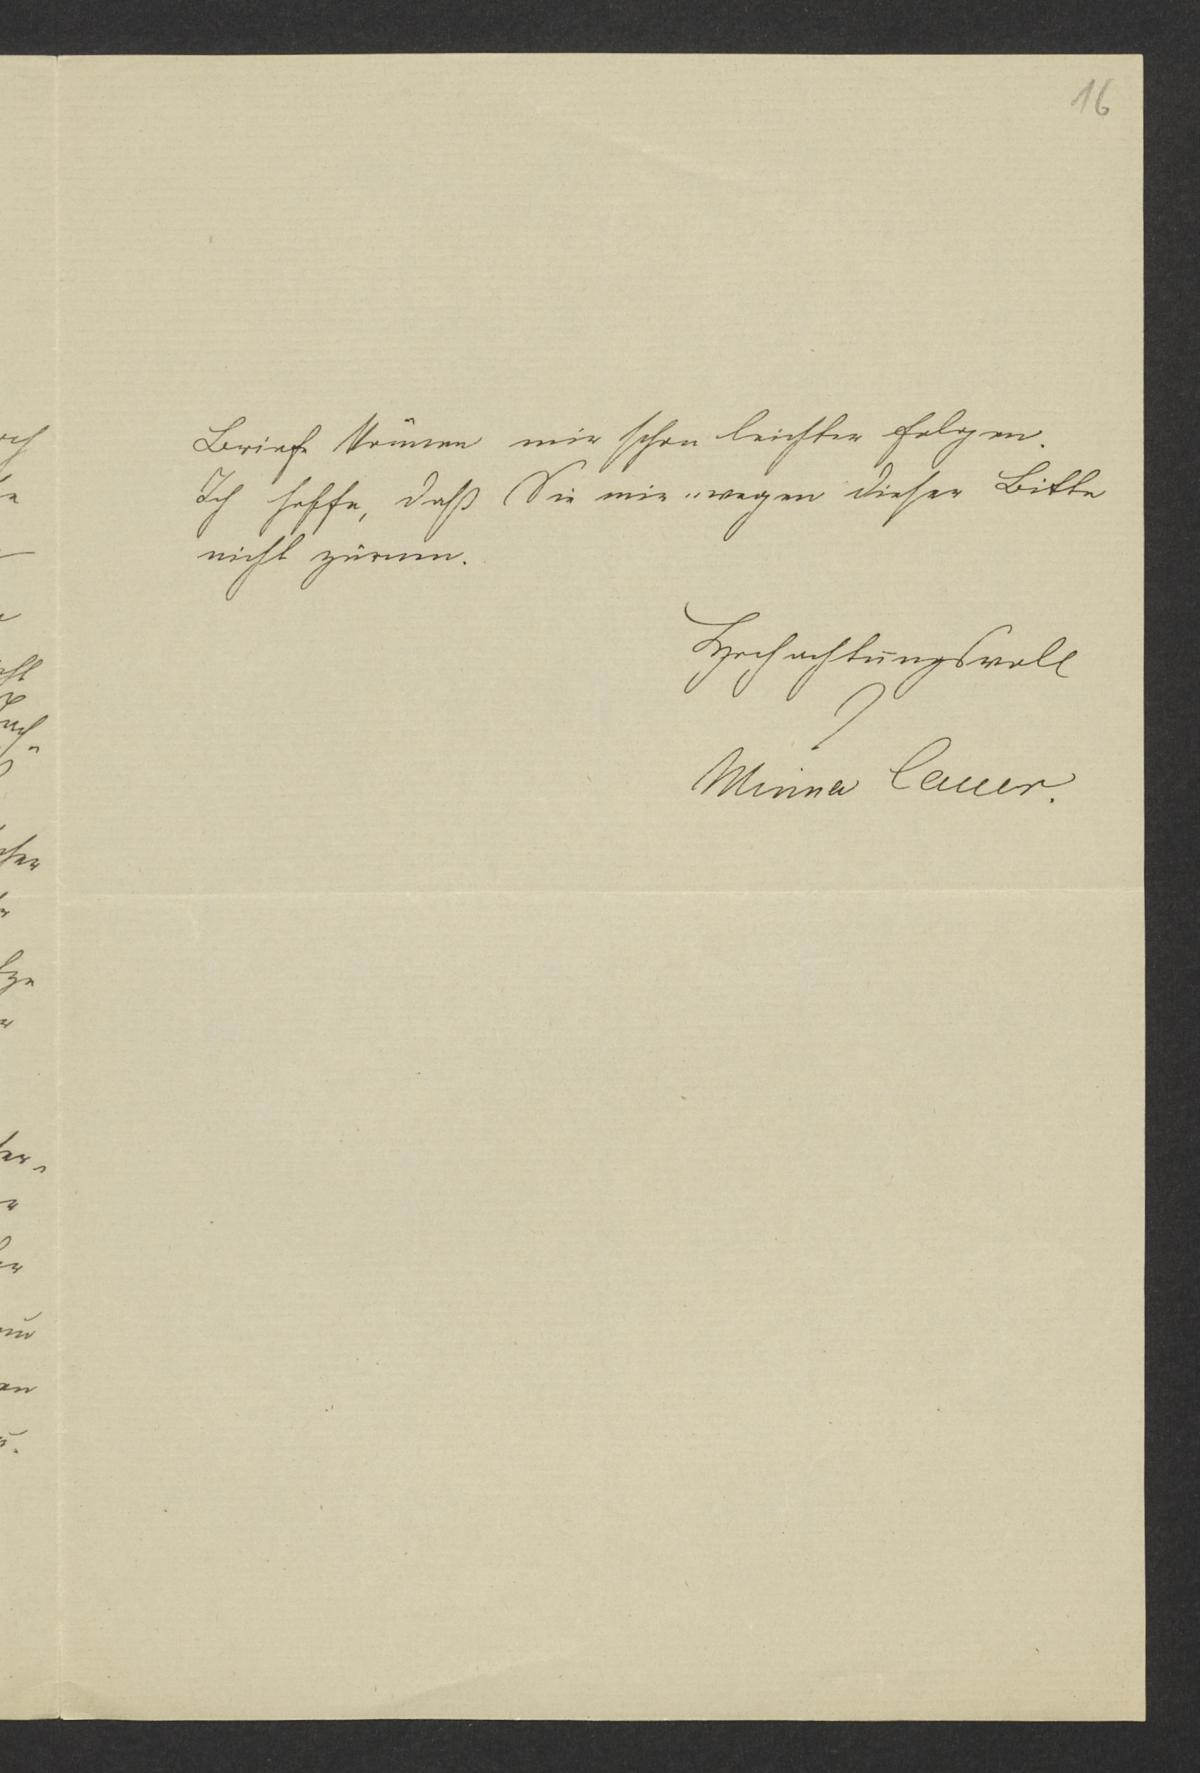 16
Briefe können mir schon leichter folgen.
Ich hoffe, daß Sie mir wegen dieser Bitte
nicht zürnen.
Hochachtungsvoll
Minna Cauer.